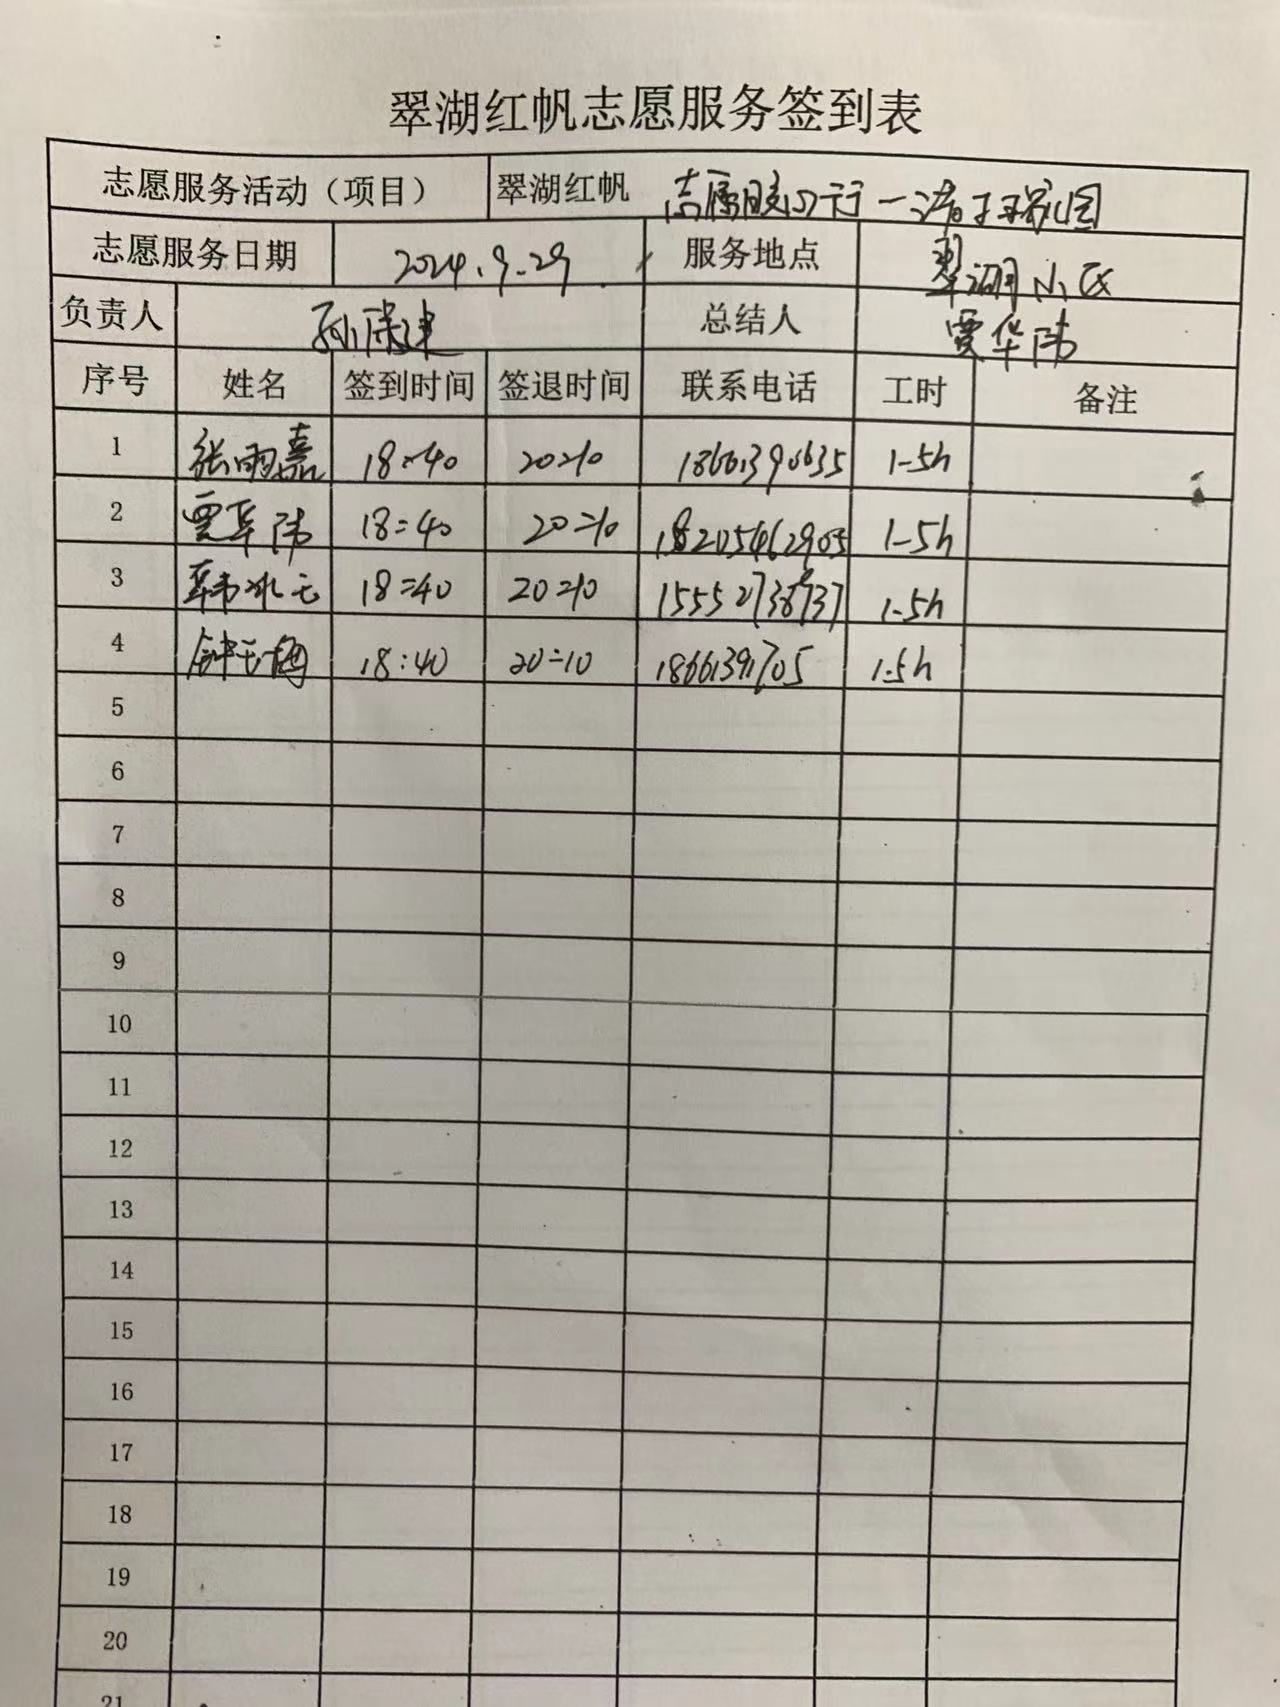 翠湖红帆志愿服务签到表
志愿服务活动（项目） 翠湖红帆 志愿服务行一清
志愿服务日期 2024.9.29 服务地点 翠湖小区
负责人 孙保建 总结人 贾华沛
序号 姓名 签到时间 签退时间 联系电话 工时 备注
1 张雨嘉 18:40 20:10 18661390635 1.5h
2 贾华沛 18:40 20:10 1.5h
3 韩冰 18:40 20:10 1.5h
4 钟 18:40 20:10 18661391705 1.5h
5
6
7
8
9
10
11
12
13
14
15
16
17
18
19
20
21